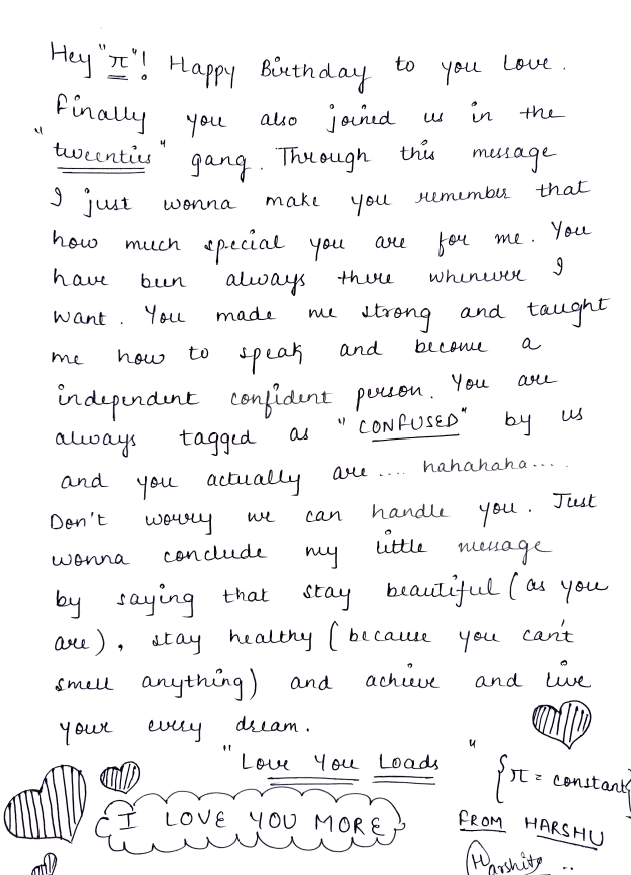 Hey "π"! Happy Birthday to you Love.
Finally you also joined us in the
"tweenties" gang. Through this message
I just wonna make you remember that
how much special you are for me. You
have been always there whenever I
want. You made me strong and taught
me how to speak and become a
independent confident person. You are
always tagged as "CONFUSED" by us
and you actually are.... hahahaha....
Don't worry we can handle you. Just
wonna conclude my little message
by saying that stay beautiful (as you
are), stay healthy (because you can't
smell anything) and achieve and live
your every dream.
"Love You Loads"
{π = constant}
I LOVE YOU MORE
FROM HARSHU
Harshita ..